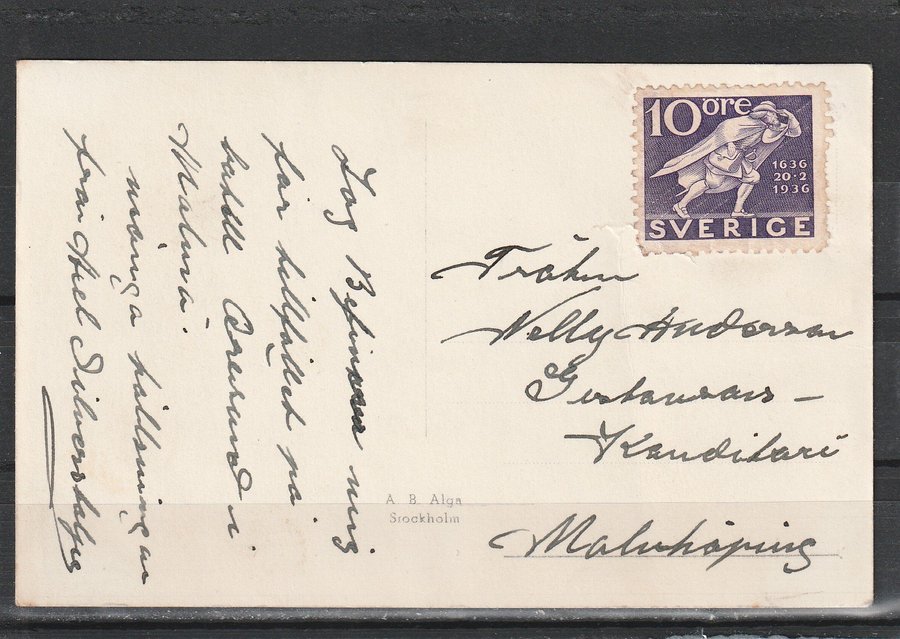 Jag Befinner mig
för tillfället på
båtdt Öresund i
Malmö.
många hälsningar
från Axel Silverstolpe
10 öre
1636
20·2
1936
SVERIGE
Fröken
Nelly Anderson
Gustavssons-
Konditori
Malmköping
A. B. Alga
Stockholm